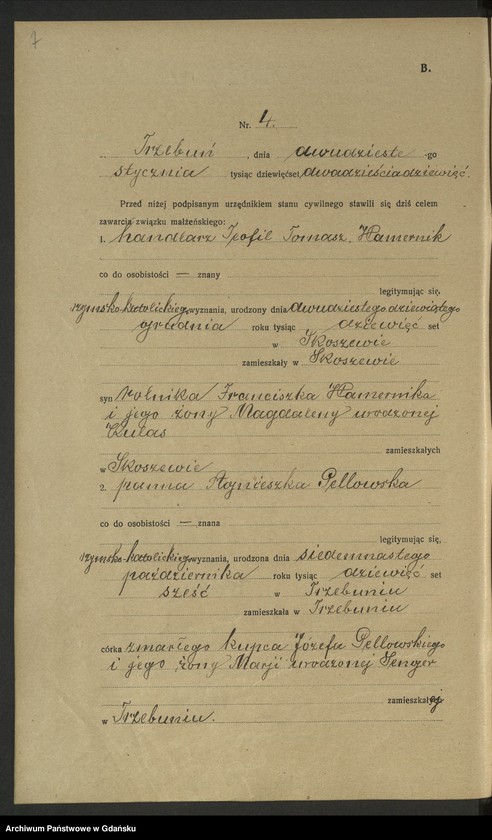 7
B.
Nr. 4.
Trzebuń, dnia dwudzieste -go
stycznia tysiąc dziewięćset dwadzieścia dziewięć.
Przed niżej podpisanym urzędnikiem stanu cywilnego stawili się dziś celem
zawarcia związku małżeńskiego:
1. handlarz Teofil Tomasz Hamernik
co do osobistości — znany
legitymując się,
rzymsko-katolickiego wyznania, urodzony dnia dwudziestego dziewiątego
grudnia roku tysiąc dziewięć set
w Skoszewie
zamieszkały w Skoszewie
syn rolnika Franciszka Hamernika
i jego żony Magdaleny urodzonej
Kulas
zamieszkałych
w Skoszewie
2. panna Agnieszka Pellowska
co do osobistości — znana
legitymując się,
rzymsko-katolickiego wyznania, urodzona dnia siedemnastego
października roku tysiąc dziewięć set
sześć w Trzebuniu
zamieszkała w Trzebuniu
córka zmarłego kupca Józefa Pellowskiego
i jego żony Marji urodzonej Senger
zamieszkałej
w Trzebuniu.
Archiwum Państwowe w Gdańsku